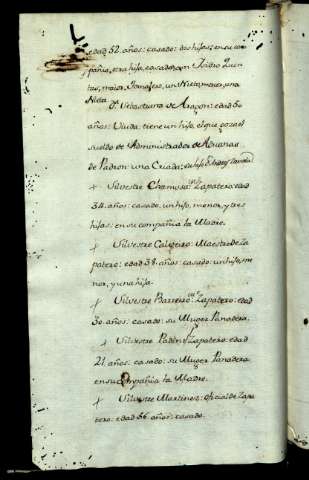 edad 52. años: casado: dos hijas; en su com
pañia, otra hija, casada, con Isidro Quin
tas, maior Jornalero, un Nieto, menor, y una
Nieta.
Dª Sebastiana de Aragon: edad 50
años: Viuda: tiene un hijo, el que goza el
sueldo de Administrador de Aduanas
de Padron: una Criada: su hijo
+ Silvestre Chamosa: Zapatero: edad
38. años: casado, un hijo, menor, y tres
hijas: en su compañia la Madre.
+ Silvestre Caleiro: Maestro de Za
patero: edad 38. años: casado: un hijo, me
nor, y una hija.
+ Silvestre Barreiro: Zapatero: edad
30. años: casado: su Muger Panadera.
+ Silvestre Padin: Zapatero: edad
21. años: casado: su Muger Panadera
en su compañia la Madre.
+ Silvestre Martinez: oficial de Zapa
tero: edad 56. años: casado.